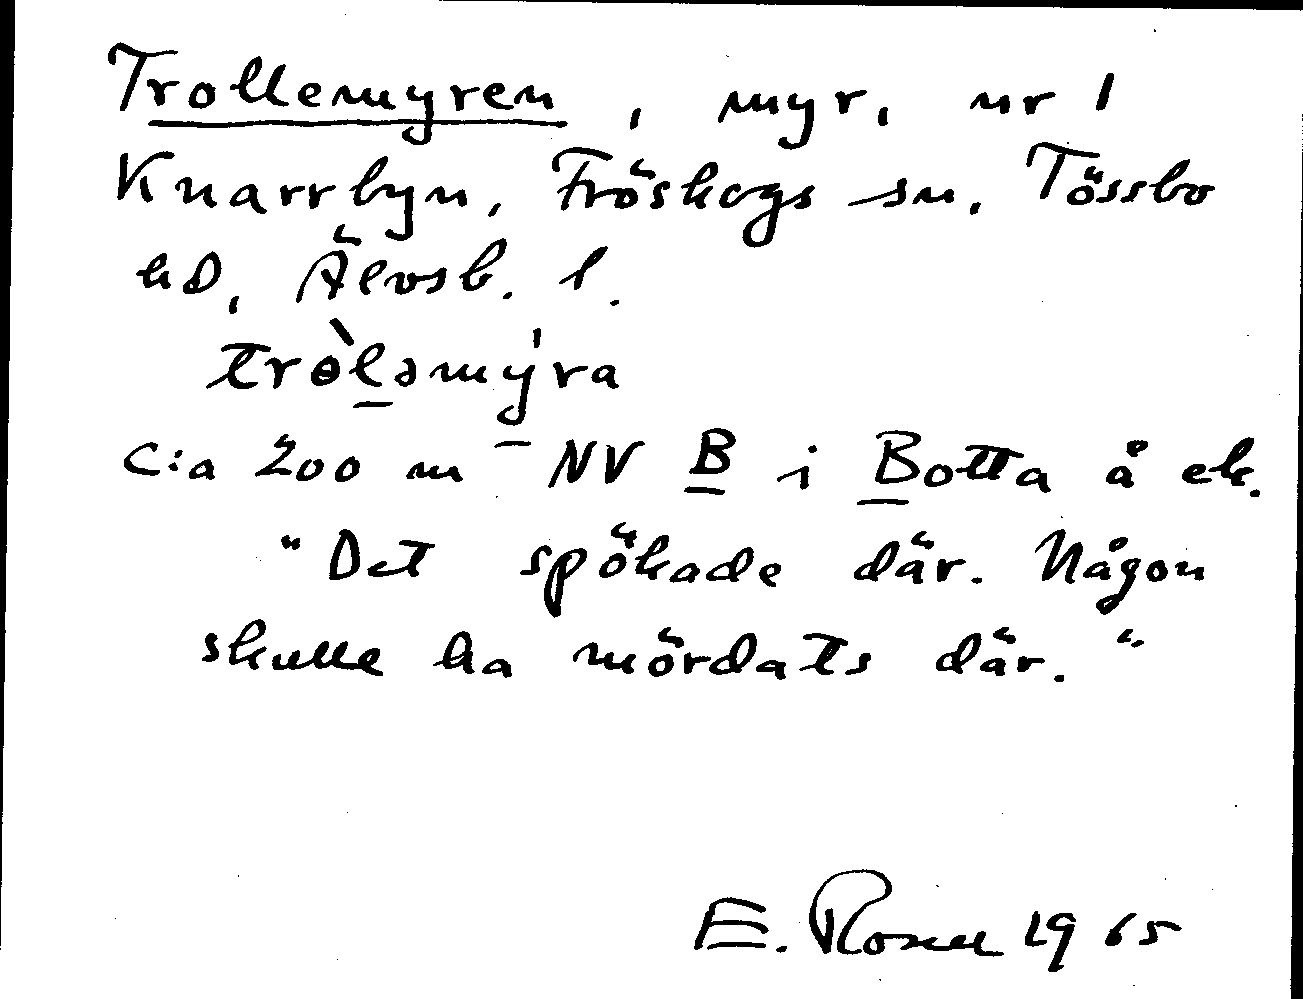 Trollemyren, myr, nr 1
Knarrbyn, Fröskogs sn, Tössbo
hd, Älvsb. l.
tròl̠əmýra
c:a 200 m NV B i Botta å ek.
"Det spökade där. Någon
skulle ha mördats där."
E. Rosell 1965